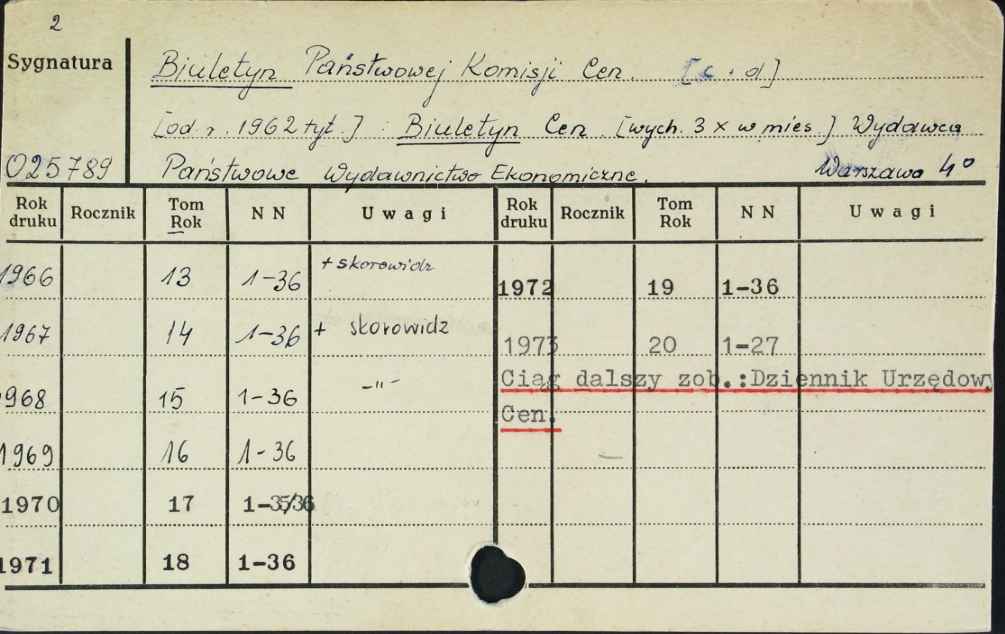 2
Sygnatura
Biuletyn Państwowej Komisji Cen. [c. d]
[od r. 1962 tyt.] : Biuletyn Cen. [wych. 3 x w mies.] Wydawca
025789 Państwowe Wydawnictwo Ekonomiczne. Warszawa 4°
Rok druku Rocznik Tom Rok NN Uwagi Rok druku Rocznik Tom Rok NN Uwagi
1966 13 1-36 + skorowidz 1972 19 1-36
1967 14 1-36 + skorowidz 1973 20 1-27
Ciąg dalszy zob.:Dziennik Urzędowy
1968 15 1-36 -"-
Cen.
1969 16 1-36
1970 17 1-35/36
1971 18 1-36